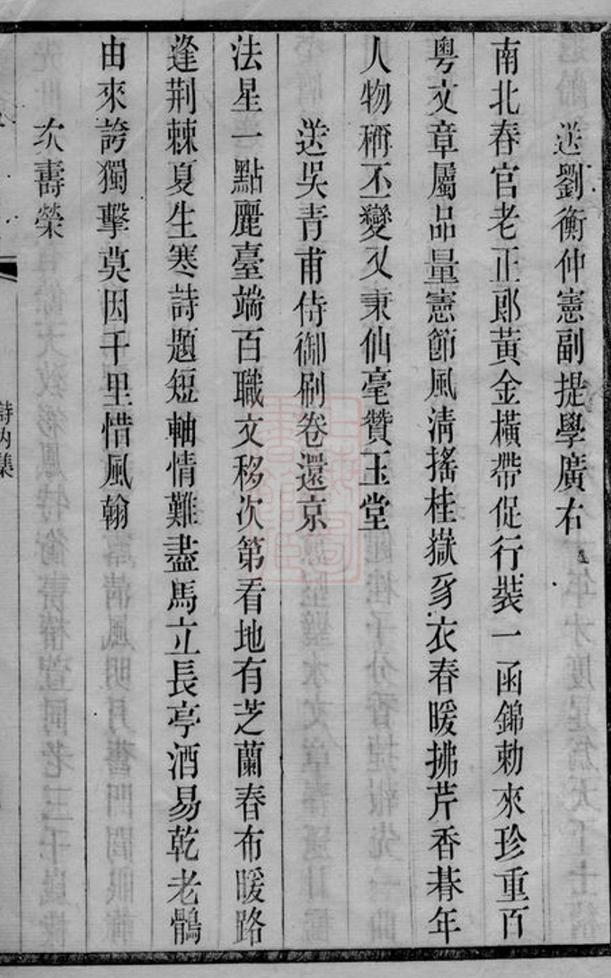 送劉衡仲憲副提學廣右
南北春官老正郎黃金橫帶促行裝一函錦勅來珍重百
粵文章屬品量憲節風清搖桂嶽豸衣春暖拂芹香朞年
人物稱丕變又秉仙毫贊玉堂
送吳青甫侍御刷卷還京
法星一點麗臺端百職文移次第看地有芝蘭春布暖路
逢荆棘夏生寒詩題短軸情難盡馬立長亭酒易乾老鶻
由來誇獨擊莫因千里惜風翰
次壽榮
詩內集